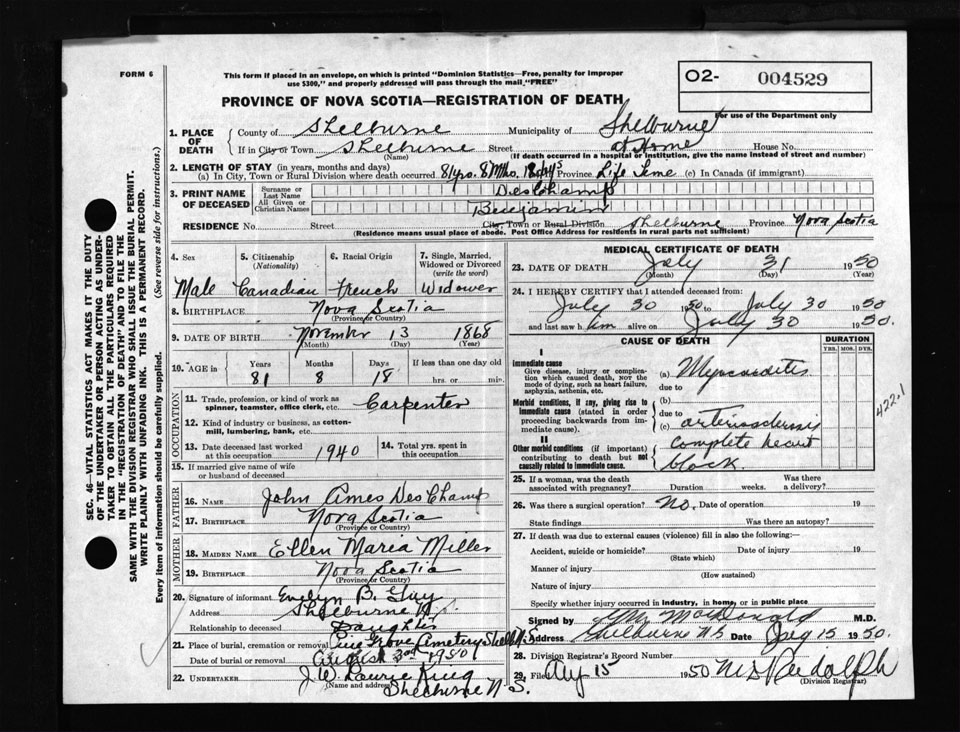 FORM 6
This form if placed in an envelope, on which is printed "Dominion Statistics—Free, penalty for improper
use $300," and properly addressed will pass through the mail "FREE"
O2- 004529
For use of the Department only
PROVINCE OF NOVA SCOTIA—REGISTRATION OF DEATH
1. PLACE OF DEATH
County of Shelburne Municipality of Shelburne
If in City or Town Shelburne Street at Home House No.
(Name) (If death occurred in a hospital or institution, give the name instead of street and number)
2. LENGTH OF STAY (in years, months and days)
(a) In City, Town or Rural Division where death occurred 81 yrs. 8 Mths. 18 dys Province Life Time (c) In Canada (if immigrant)
3. PRINT NAME OF DECEASED
Surname or Last Name DesChamp
All Given or Christian Names Benjamin
RESIDENCE No. Street City, Town or Rural Division Shelburne Province Nova Scotia
(Residence means usual place of abode. Post Office Address for residents in rural parts not sufficient)
4. Sex 5. Citizenship (Nationality) 6. Racial Origin 7. Single, Married, Widowed or Divorced (write the word)
Male Canadian French Widower
8. BIRTHPLACE Nova Scotia
(Province or Country)
9. DATE OF BIRTH November 13 1868
(Month) (Day) (Year)
10. AGE in Years Months Days If less than one day old
81 8 18 hrs. or min.
OCCUPATION
11. Trade, profession, or kind of work as spinner, teamster, office clerk, etc. Carpenter
12. Kind of industry or business, as cotton-mill, lumbering, bank, etc.
13. Date deceased last worked at this occupation 1940 14. Total yrs. spent in this occupation
15. If married give name of wife or husband of deceased
FATHER
16. NAME John Ames DesChamp
17. BIRTHPLACE Nova Scotia
(Province or Country)
MOTHER
18. MAIDEN NAME Ellen Maria Miller
19. BIRTHPLACE Nova Scotia
(Province or Country)
20. Signature of informant Evelyn B. Guy
Address Shelburne N.S.
Relationship to deceased Daughter
21. Place of burial, cremation or removal Pine Grove Cemetery Shelb. N.S.
Date of burial or removal August 3rd 1950
22. UNDERTAKER J. W. Laurie King
(Name and address) Shelburne N.S.
MEDICAL CERTIFICATE OF DEATH
23. DATE OF DEATH July 31 1950
(Month) (Day) (Year)
24. I HEREBY CERTIFY that I attended deceased from:
July 30 1950 to July 30 1950
and last saw h im alive on July 30 1950.
CAUSE OF DEATH DURATION
YRS. MOS. DYS.
I
Immediate cause
Give disease, injury or complication which caused death, NOT the mode of dying, such as heart failure, asphyxia, asthenia, etc.
(a) Myocarditis
due to
Morbid conditions, if any, giving rise to immediate cause (stated in order proceeding backwards from immediate cause).
(b)
due to
(c) arteriosclerosis
II
Other morbid conditions (if important) contributing to death but not causally related to immediate cause.
complete heart
block.
422.1
25. If a woman, was the death associated with pregnancy? Duration weeks. Was there a delivery?
26. Was there a surgical operation? No. Date of operation 19
State findings Was there an autopsy?
27. If death was due to external causes (violence) fill in also the following:
Accident, suicide or homicide? Date of injury 19
(State which)
Manner of injury
(How sustained)
Nature of injury
Specify whether injury occurred in industry, in home, or in public place
Signed by McDonald M.D.
Address Shelburne N S Date Aug 15 1950.
28. Division Registrar's Record Number
29. Filed Aug 15 1950 Rudolph
(Division Registrar)
SEC. 46—VITAL STATISTICS ACT MAKES IT THE DUTY
OF THE UNDERTAKER OR PERSON ACTING AS UNDER-
TAKER TO OBTAIN ALL THE PARTICULARS REQUIRED
IN THE "REGISTRATION OF DEATH" AND TO FILE THE
SAME WITH THE DIVISION REGISTRAR WHO SHALL ISSUE THE BURIAL PERMIT.
WRITE PLAINLY WITH UNFADING INK. THIS IS A PERMANENT RECORD.
Every item of information should be carefully supplied. (See reverse side for instructions.)